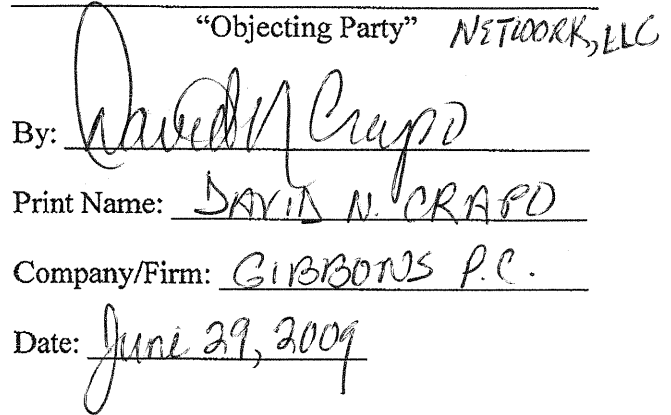 “Objecting Party” NETWORK, LLC
By: David N Crapo
Print Name: DAVID N. CRAPO
Company/Firm: GIBBONS P.C.
Date: June 29, 2009